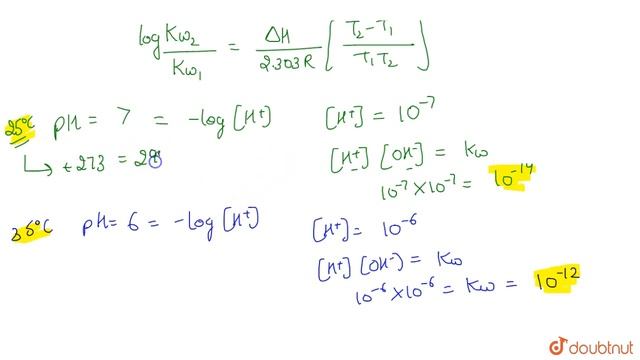 log Kw₂/Kw₁ = ΔH/2.303R [T₂-T₁/T₁T₂]
25°C pH = 7 = -log [H+] [H+] = 10⁻⁷
↳ +273 = 29
[H+] [OH-] = Kw
10⁻⁷ × 10⁻⁷ = 10⁻¹⁴
35°C pH = 6 = -log [H+] [H+] = 10⁻⁶
[H+] [OH-) = Kw
10⁻⁶ × 10⁻⁶ = Kw = 10⁻¹²
doubtnut